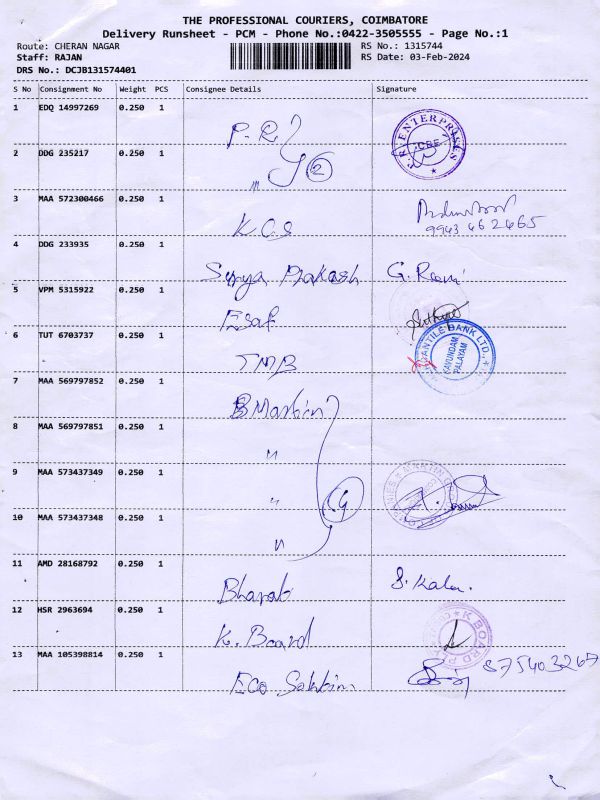 THE PROFESSIONAL COURIERS, COIMBATORE
Delivery Runsheet - PCM - Phone No.:0422-3505555 - Page No.:1
Route: CHERAN NAGAR RS No.: 1315744
Staff: RAJAN RS Date: 03-Feb-2024
DRS No.: DCJB131574401
S No Consignment No Weight PCS Consignee Details Signature
1 EDQ 14997269 0.250 1 P.R ENTERPRISES CBE
2 DDG 235217 0.250 1 " 2
3 MAA 572300466 0.250 1 K.C.S 9943 462465
4 DDG 233935 0.250 1 Surya Prakash G. Rani
5 VPM 5315922 0.250 1 Esaf
6 TUT 6703737 0.250 1 TMB ANTILE BANK LTD., KAVUNDAM PALAYAM
7 MAA 569797852 0.250 1 B Martin
8 MAA 569797851 0.250 1 "
9 MAA 573437349 0.250 1 " 4 MARTIN
10 MAA 573437348 0.250 1 "
11 AMD 28168792 0.250 1 Bharat S. Kala.
12 HSR 2963694 0.250 1 K. Board K BOARD
13 MAA 105398814 0.250 1 Eco Solution